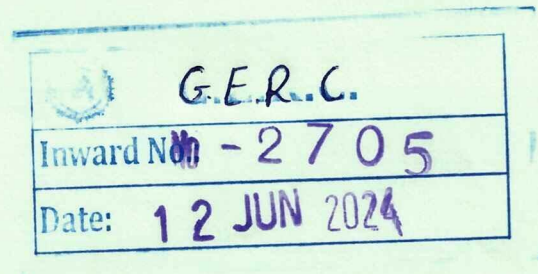 G.E.R.C.
Inward No - 2705
Date: 12 JUN 2024